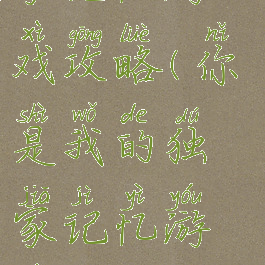 xì gōng lüè nǐ
戏攻略(你
shì wǒ de dú
是我的独
jiā jì yì yóu
家记忆游